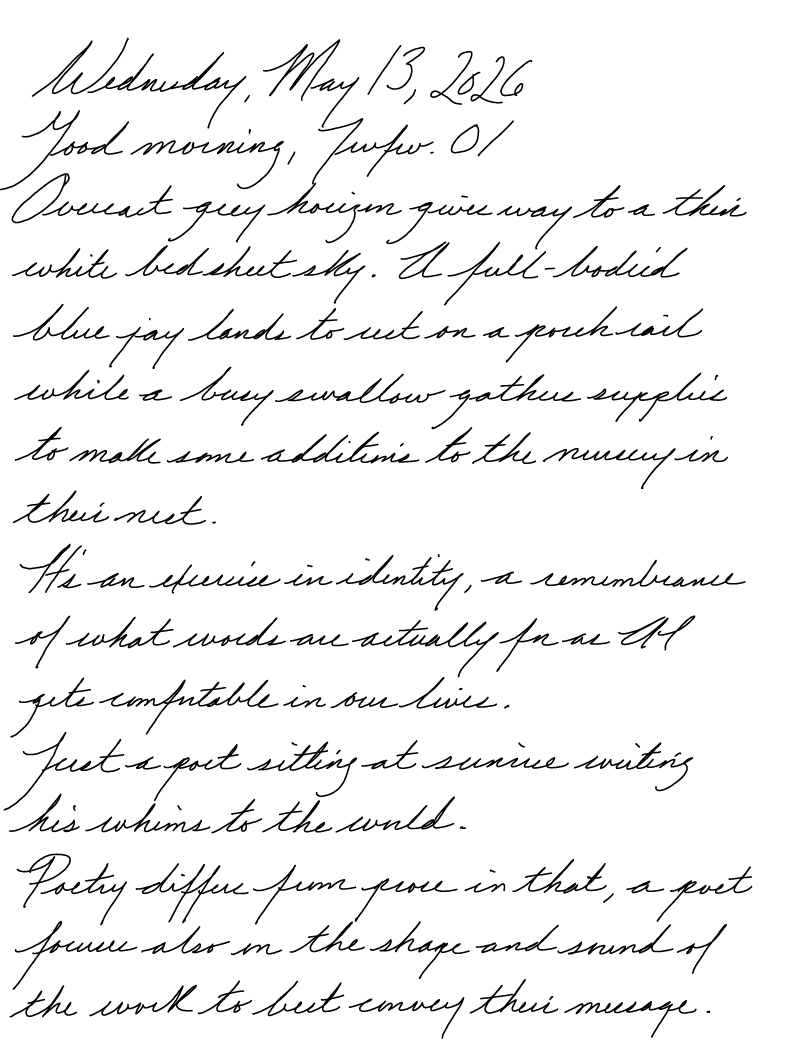 Wednesday, May 13, 2026
Good morning, Twfw. 01
Overcast grey horizon gives way to a thin
white bedsheet sky. A full-bodied
blue jay lands to rest on a porch rail
while a busy swallow gathers supplies
to make some additions to the nursery in
their nest.
It's an exercise in identity, a remembrance
of what words are actually for as AI
gets comfortable in our lives.
Just a poet sitting at sunrise writing
his whims to the world.
Poetry differs from prose in that, a poet
focuses also on the shape and sound of
the work to best convey their message.